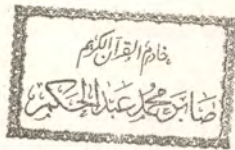 خادم القرآن الكريم
صابر محمد عبد الحكم